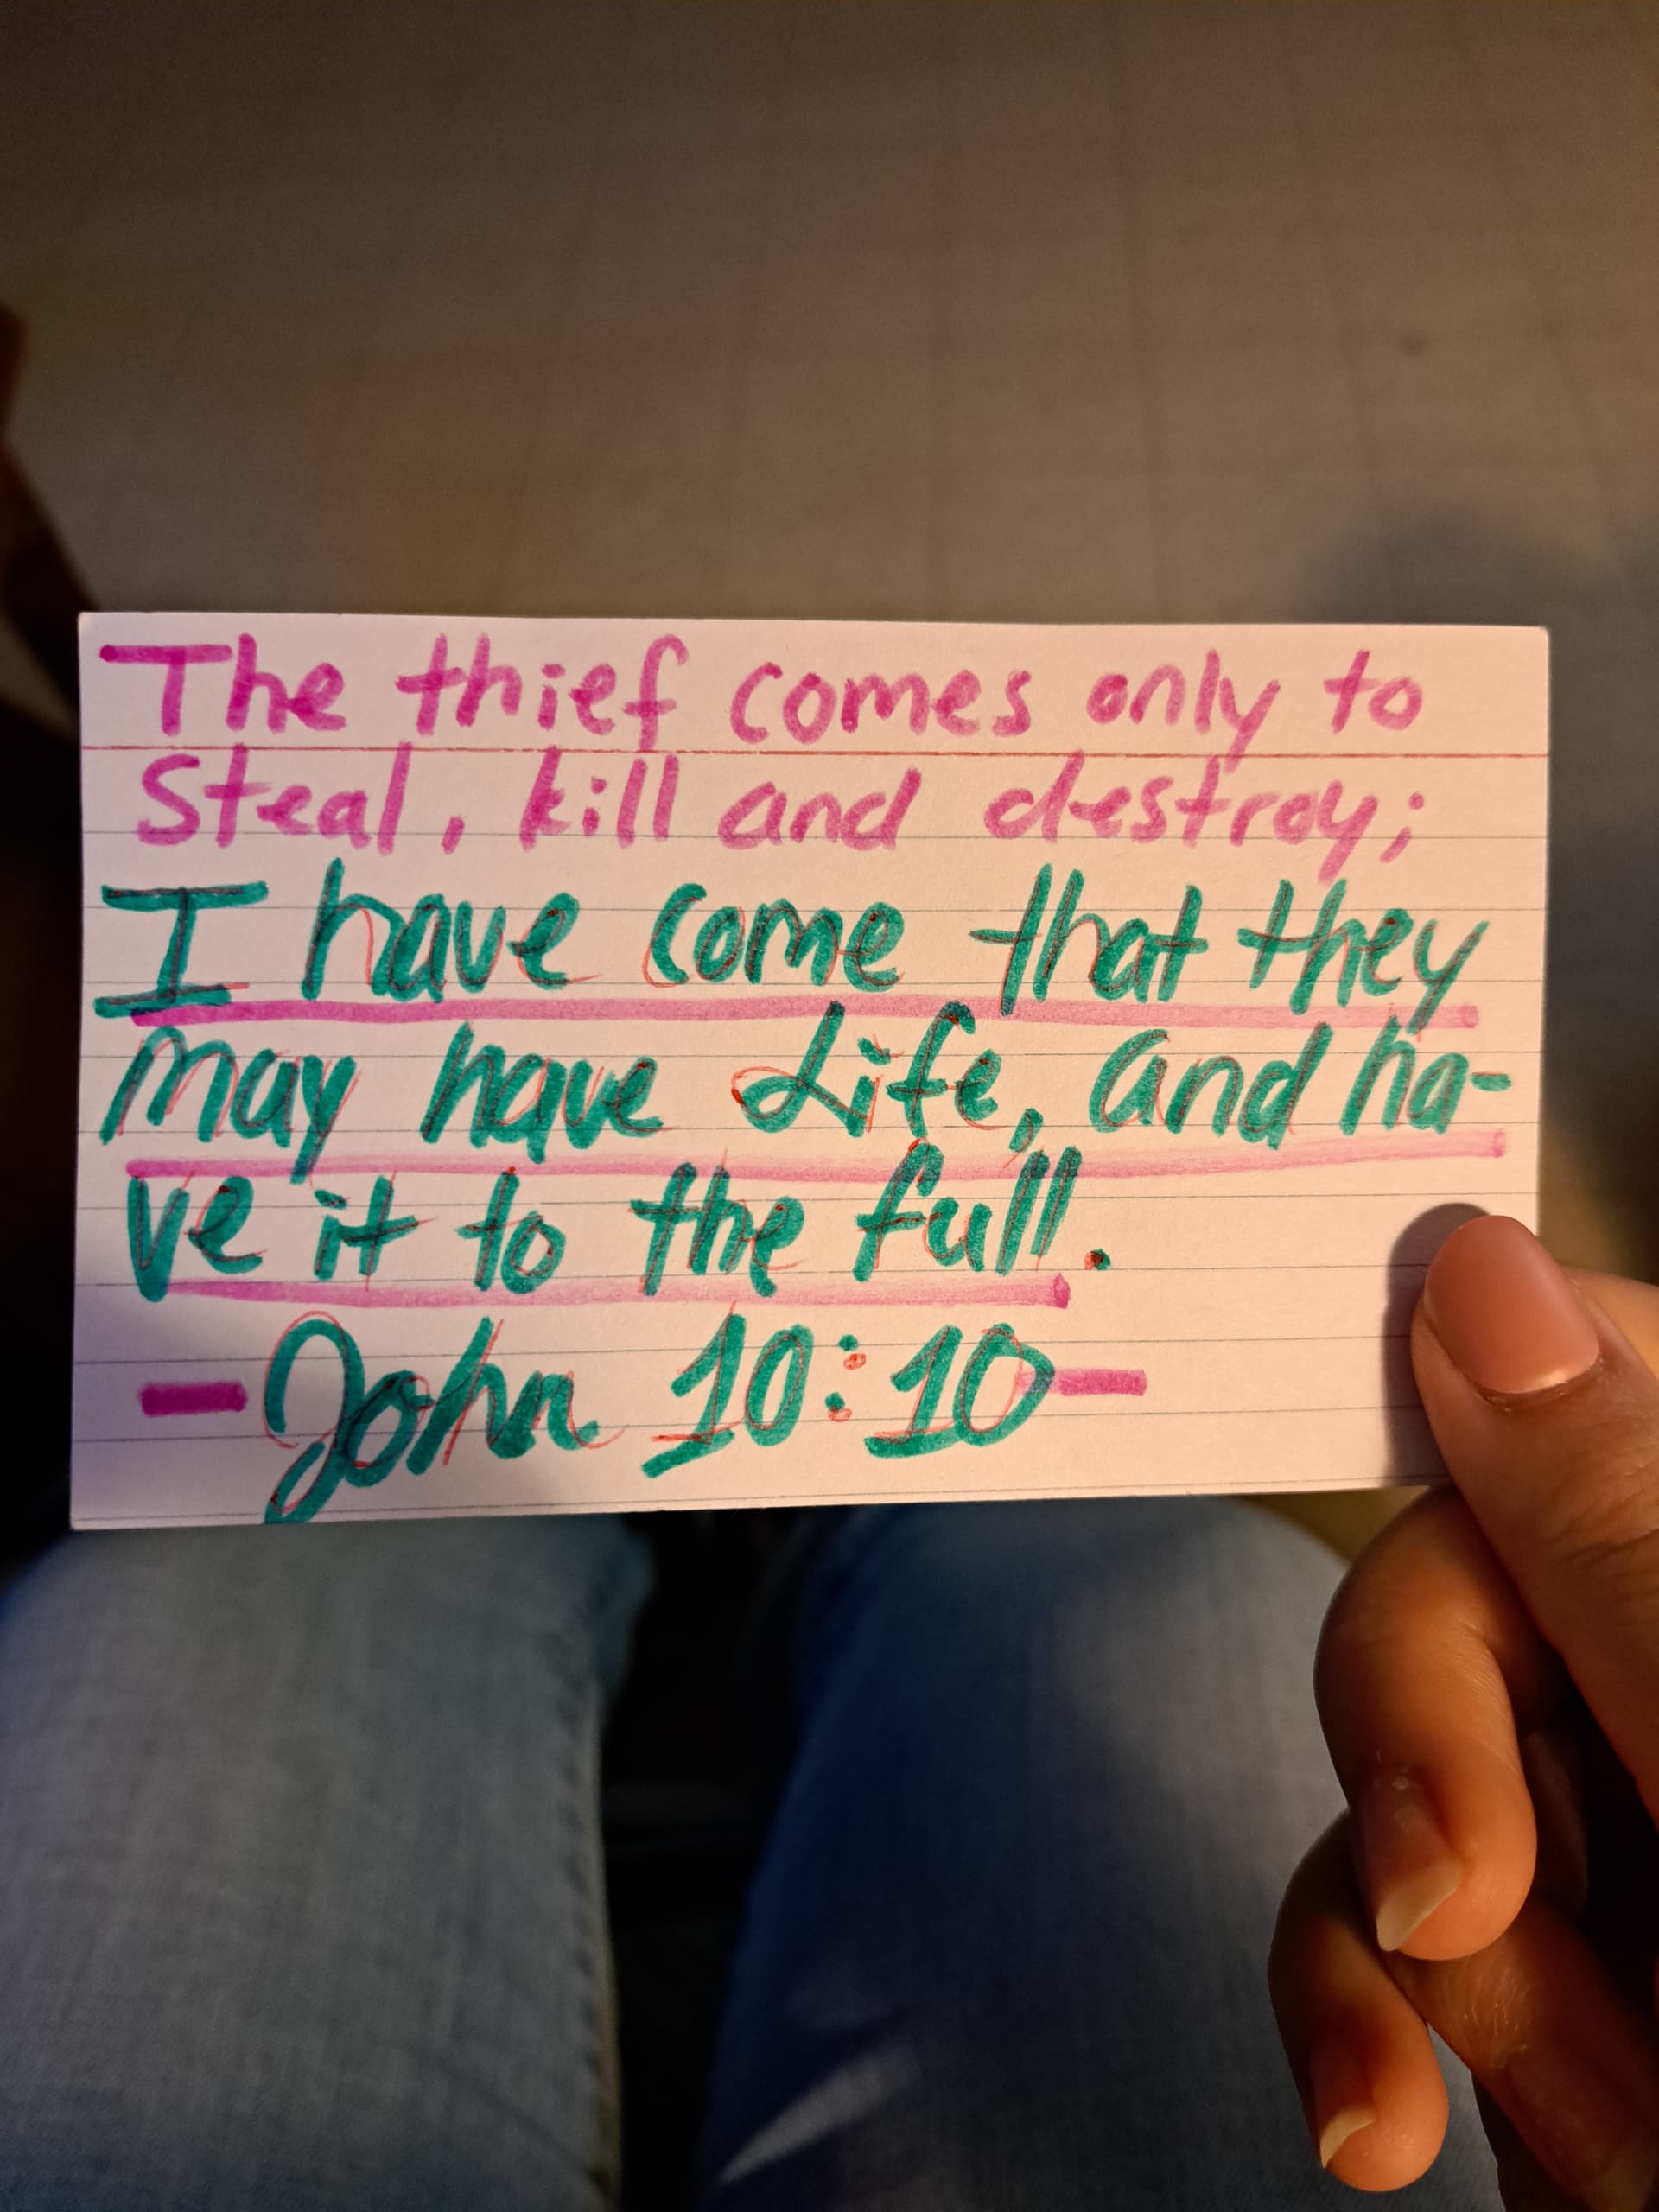 The thief comes only to
Steal, kill and destroy;
I have come that they
may have Life, and ha-
ve it to the full.
- John 10:10 -